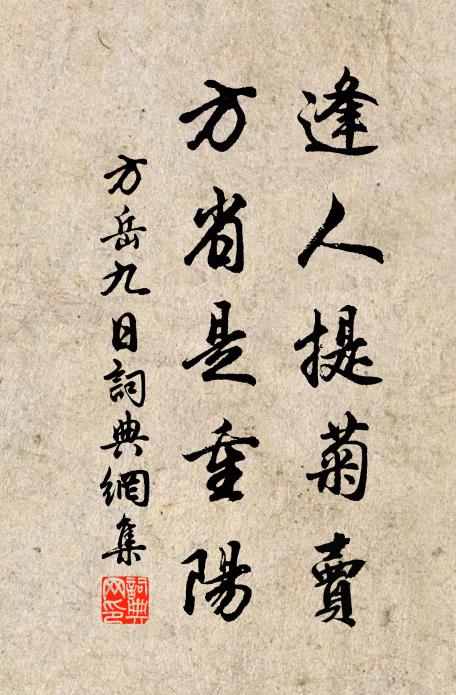 逢人提菊賣
方省是重陽
方岳九日詞典網集
詞典网印